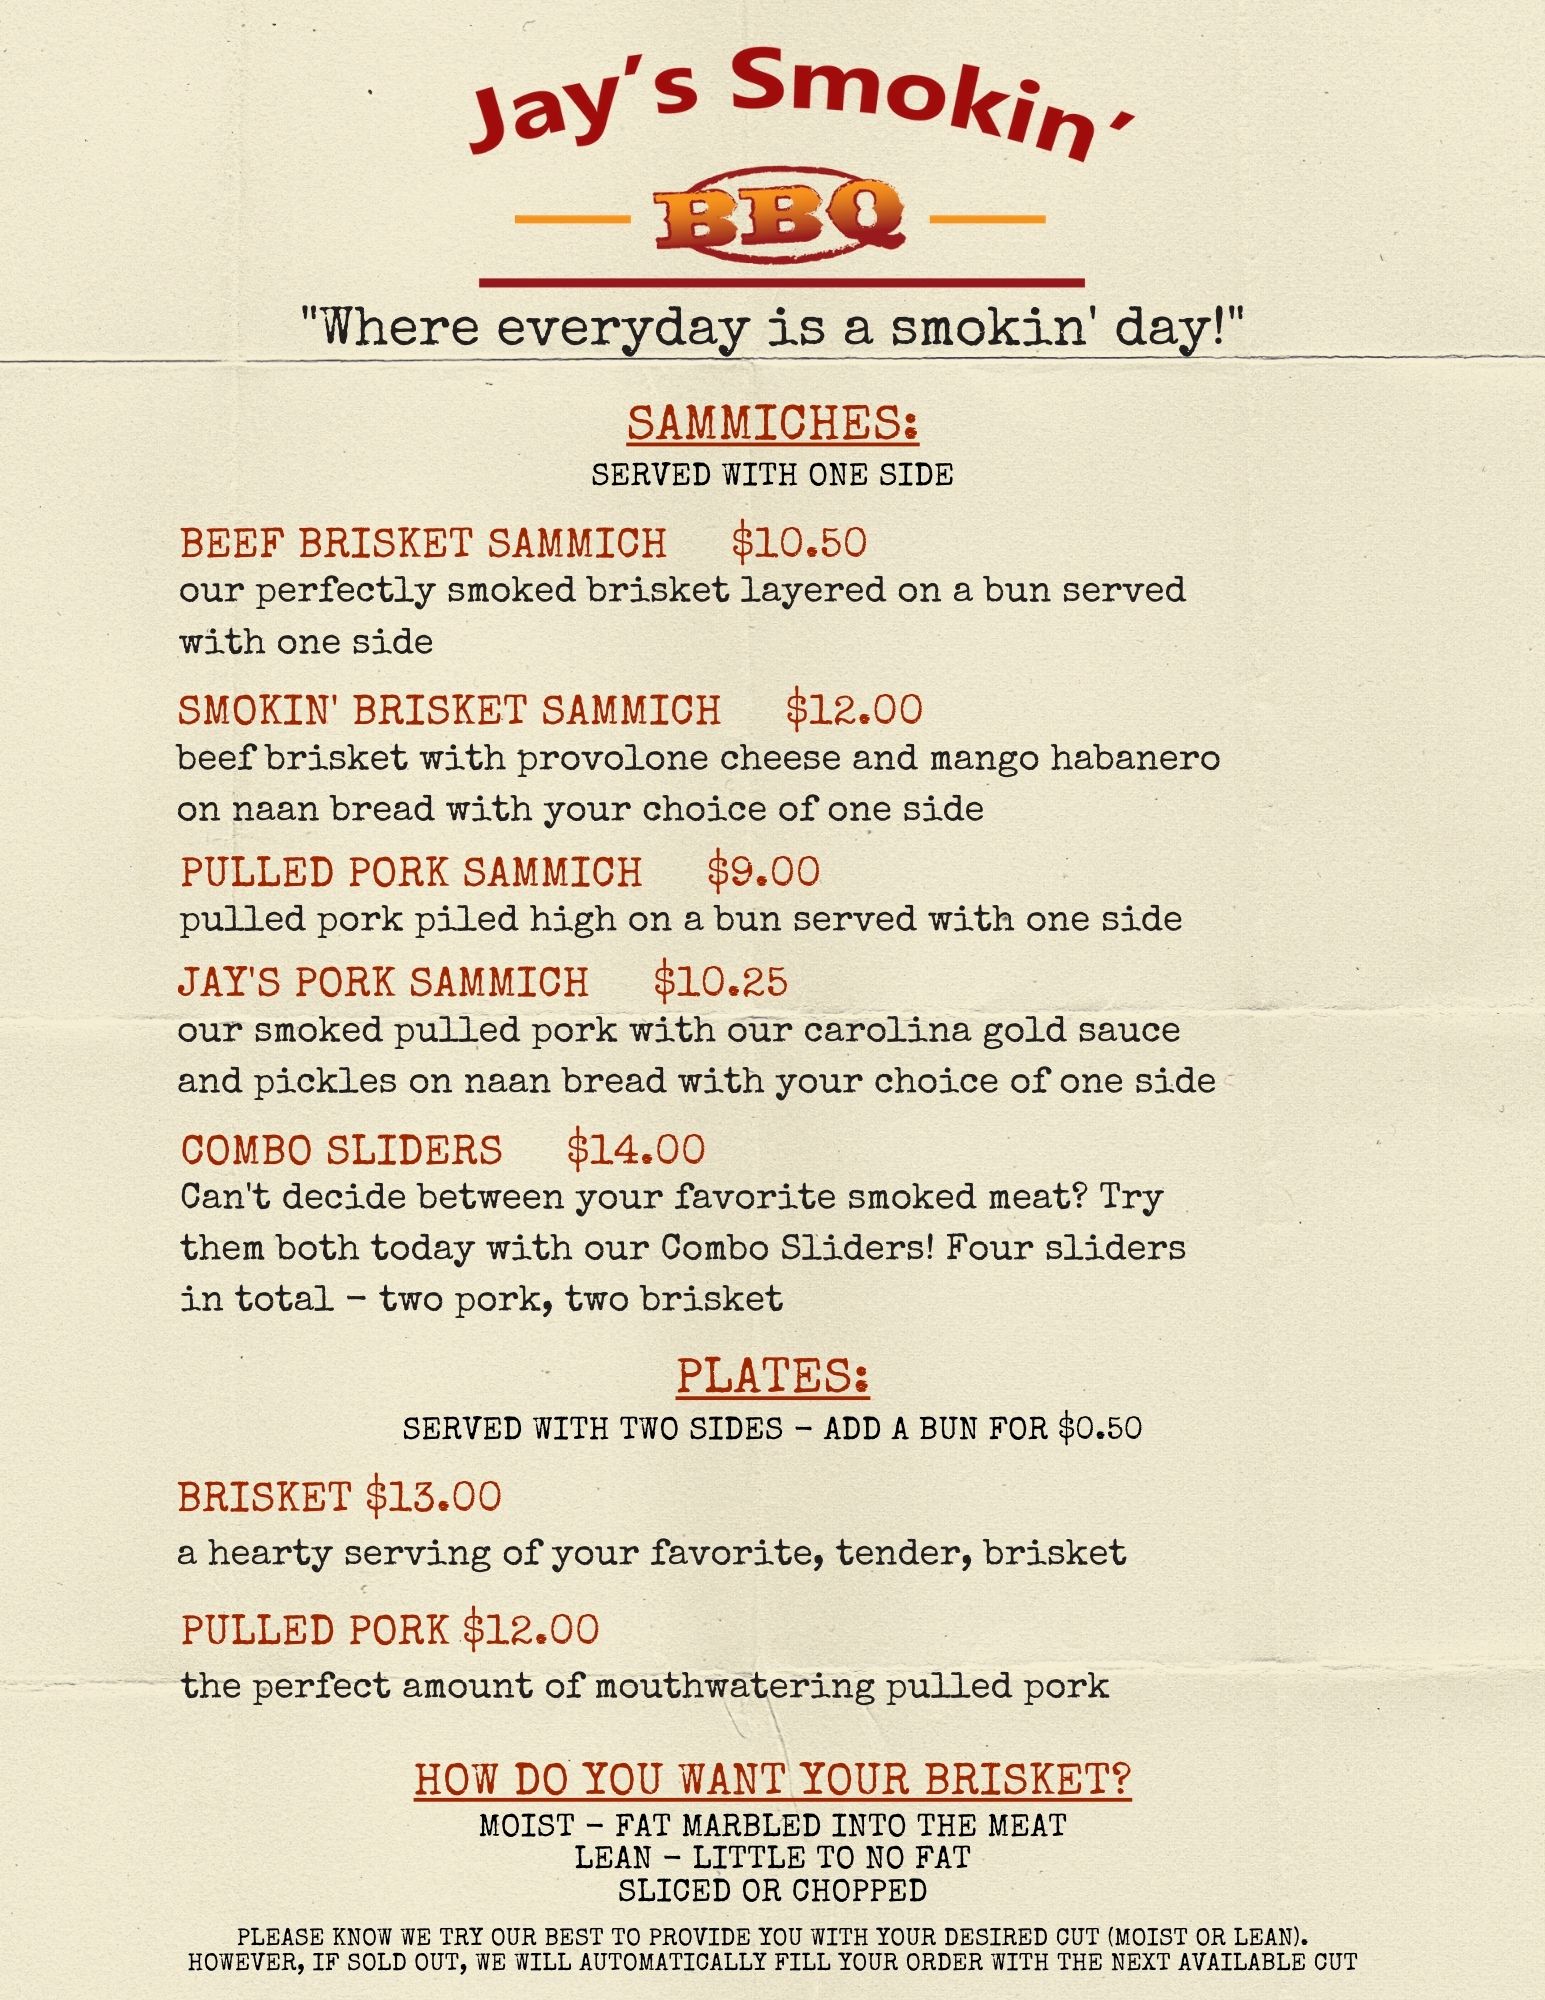 Jay's Smokin'
BBQ
"Where everyday is a smokin' day!"
SAMMICHES:
SERVED WITH ONE SIDE
BEEF BRISKET SAMMICH $10.50
our perfectly smoked brisket layered on a bun served
with one side
SMOKIN' BRISKET SAMMICH $12.00
beef brisket with provolone cheese and mango habanero
on naan bread with your choice of one side
PULLED PORK SAMMICH $9.00
pulled pork piled high on a bun served with one side
JAY'S PORK SAMMICH $10.25
our smoked pulled pork with our carolina gold sauce
and pickles on naan bread with your choice of one side
COMBO SLIDERS $14.00
Can't decide between your favorite smoked meat? Try
them both today with our Combo Sliders! Four sliders
in total - two pork, two brisket
PLATES:
SERVED WITH TWO SIDES - ADD A BUN FOR $0.50
BRISKET $13.00
a hearty serving of your favorite, tender, brisket
PULLED PORK $12.00
the perfect amount of mouthwatering pulled pork
HOW DO YOU WANT YOUR BRISKET?
MOIST - FAT MARBLED INTO THE MEAT
LEAN - LITTLE TO NO FAT
SLICED OR CHOPPED
PLEASE KNOW WE TRY OUR BEST TO PROVIDE YOU WITH YOUR DESIRED CUT (MOIST OR LEAN).
HOWEVER, IF SOLD OUT, WE WILL AUTOMATICALLY FILL YOUR ORDER WITH THE NEXT AVAILABLE CUT